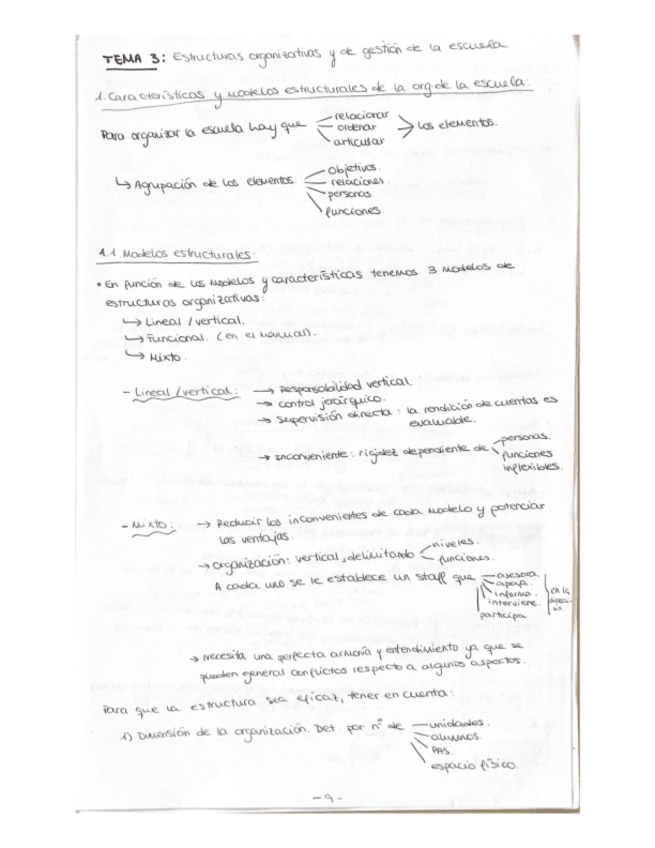 TEMA 3: Estructuras organizativas y de gestión de la escuela
1. Características y modelos estructurales de la org de la escuela:
Para organizar la escuela hay que relacionar ordenar articular los elementos.
↳ Agrupación de los elementos: objetivos. relaciones. personas funciones.
1.1. Modelos estructurales.
• En función de los modelos y características tenemos 3 modelos de
estructuras organizativas:
↳ Lineal / vertical.
↳ Funcional. (en el manual).
↳ Mixto.
- Lineal / vertical: → Responsabilidad vertical.
→ control jerárquico.
→ supervisión directa: la rendición de cuentas es
evaluable.
→ Inconveniente: rigidez dependiente de personas. funciones inflexibles.
- Mixto: → Reducir los inconvenientes de cada modelo y potenciar
las ventajas.
→ Organización: vertical, delimitando niveles. funciones.
A cada uno se le establece un staff que asesora apoya. informa. interviene. participa en la direcci-ón.
→ Necesita una perfecta armonía y entendimiento ya que se
pueden general conflictos respecto a algunos aspectos.
Para que la estructura sea eficaz, tener en cuenta:
1) Dimensión de la organización. Det. por nº de unidades. alumnos. PAS. espacio físico.
- 9 -